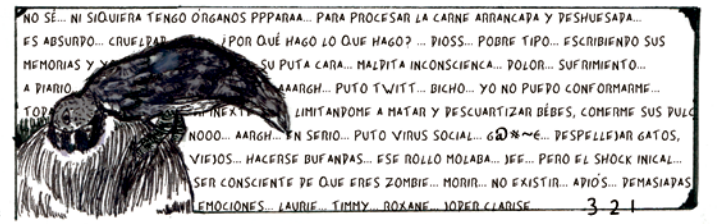 NO SÉ... NI SIQUIERA TENGO ÓRGANOS PPPARAA... PARA PROCESAR LA CARNE ARRANCADA Y DESHUESADA...
ES ABSURDO... CRUELDAD ¿POR QUÉ HAGO LO QUE HAGO? ... DIOSS... POBRE TIPO... ESCRIBIENDO SUS
MEMORIAS Y SU PUTA CARA... MALDITA INCONSCIENCA... DOLOR... SUFRIMIENTO...
A DIARIO AAARGH... PUTO TWITT... BICHO... YO NO PUEDO CONFORMARME...
LIMITANDOME A MATAR Y DESCUARTIZAR BÉBES, COMERME SUS
NOOO... AARGH... EN SERIO... PUTO VIRUS SOCIAL... G@*~€... DESPELLEJAR GATOS,
VIEJOS... HACERSE BUFANDAS... ESE ROLLO MOLABA... JEE... PERO EL SHOCK INICAL...
SER CONSCIENTE DE QUE ERES ZOMBIE... MORIR... NO EXISTIR... ADIÓS... DEMASIADAS
EMOCIONES... LAURIE... TIMMY... ROXANE... JODER CLARISE... 3 2 1